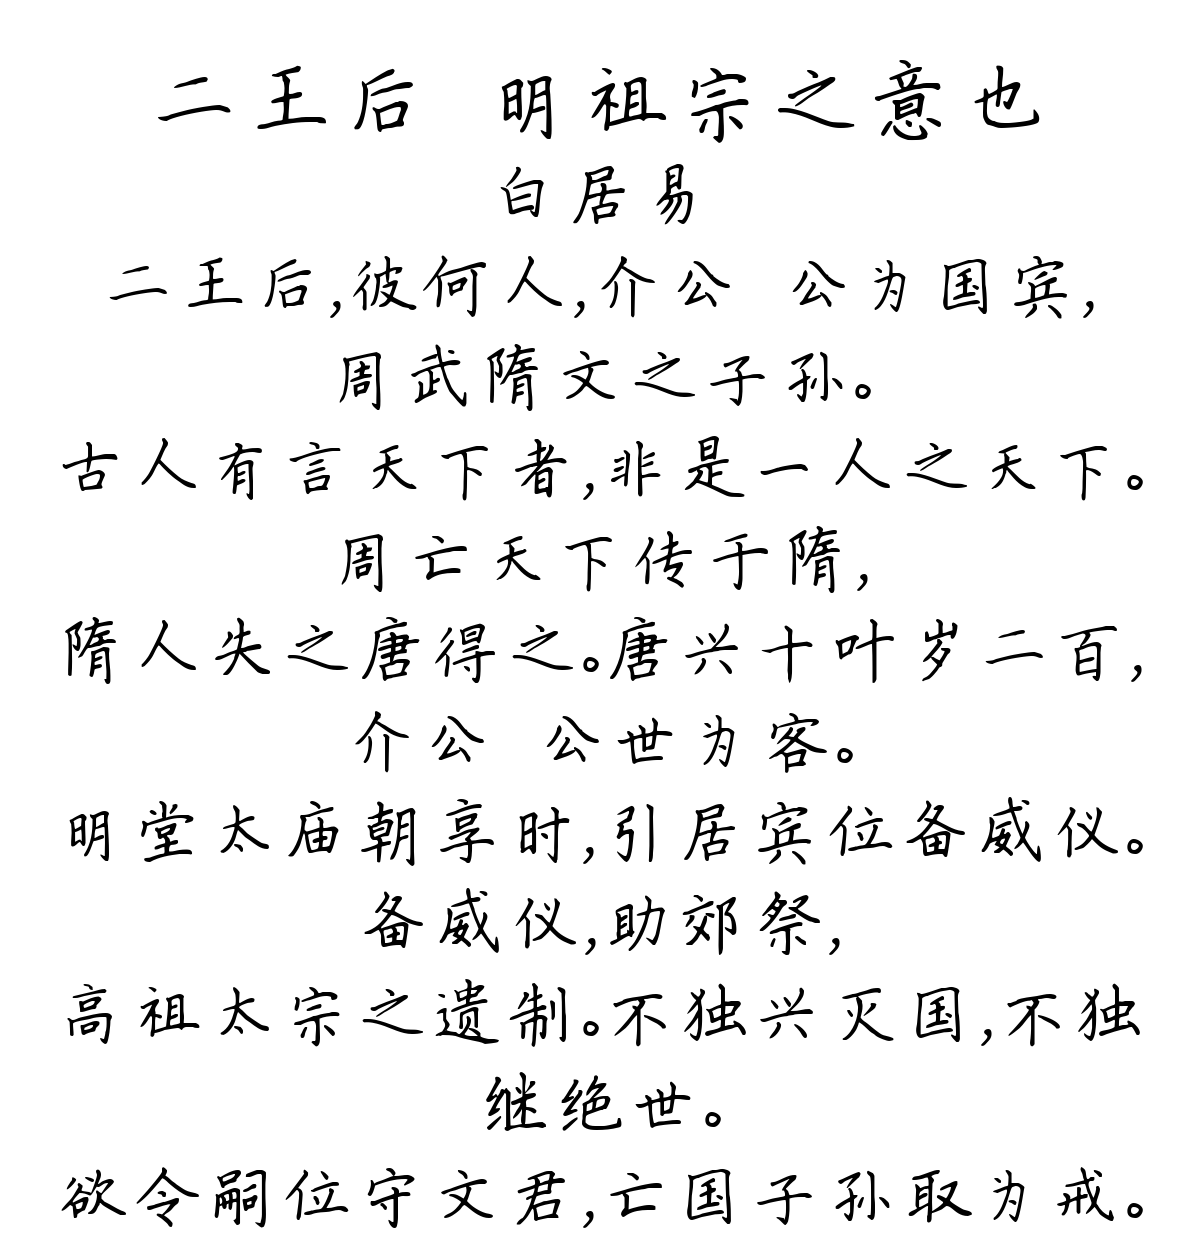 二王后 明祖宗之意也
白居易
二王后,彼何人,介公 公为国宾,
周武隋文之子孙。
古人有言天下者,非是一人之天下。
周亡天下传于隋,
隋人失之唐得之。唐兴十叶岁二百,
介公 公世为客。
明堂太庙朝享时,引居宾位备威仪。
备威仪,助郊祭,
高祖太宗之遗制。不独兴灭国,不独
继绝世。
欲令嗣位守文君,亡国子孙取为戒。